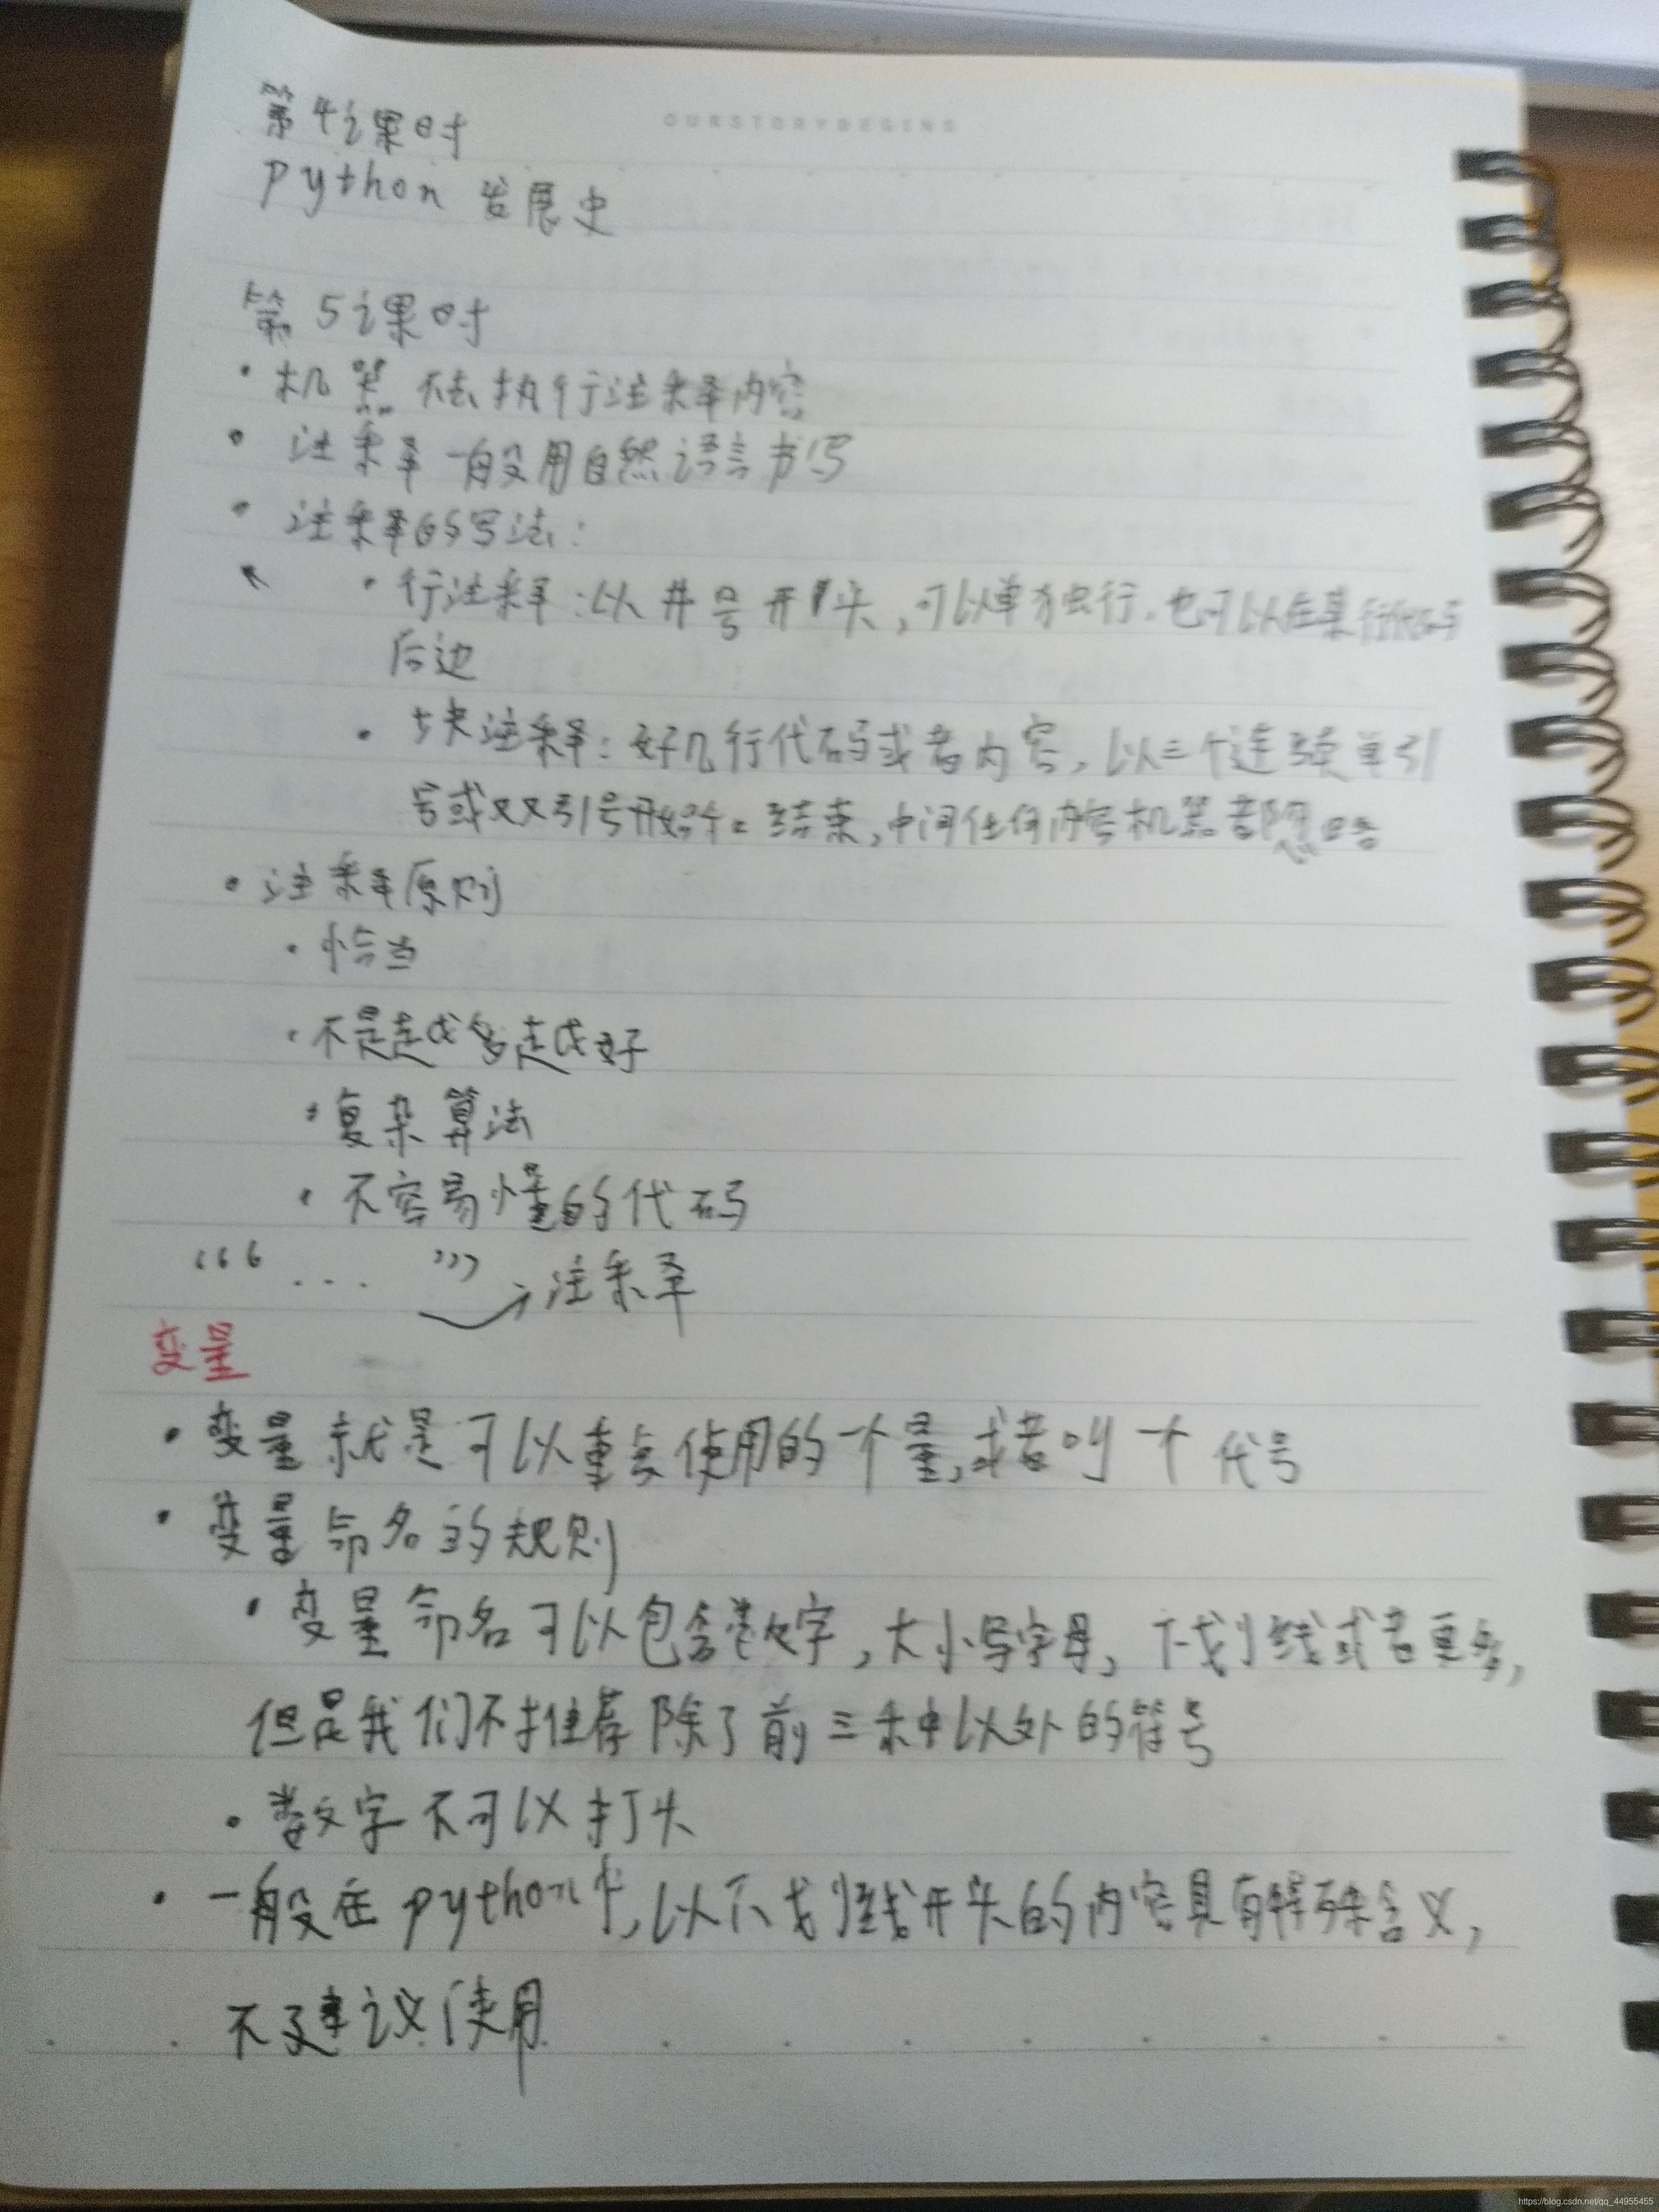 OURSTORYBEGINS
第4课时
python 发展史
第5课时
· 机器不去执行注释内容
· 注释一般用自然语言书写
· 注释的写法:
· 行注释:以井号开头,可以单独行.也可以在某行代码
后边
· 块注释:好几行代码或者内容,以三个连续单引
号或双引号开始和结束,中间任何内容机器都忽略
· 注释原则
· 恰当
· 不是越多越好
· 复杂算法
· 不容易懂的代码
‘‘‘ ... ’’’ → 注释
变量
· 变量就是可以重复使用的一个量,或者叫一个代号
· 变量命名的规则
· 变量命名可以包含数字,大小写字母,下划线或者更多,
但是我们不推荐除了前三种以外的符号
· 数字不可以打头
· 一般在python中,以下划线开头的内容具有特殊含义,
不建议使用
https://blog.csdn.net/qq_44955455